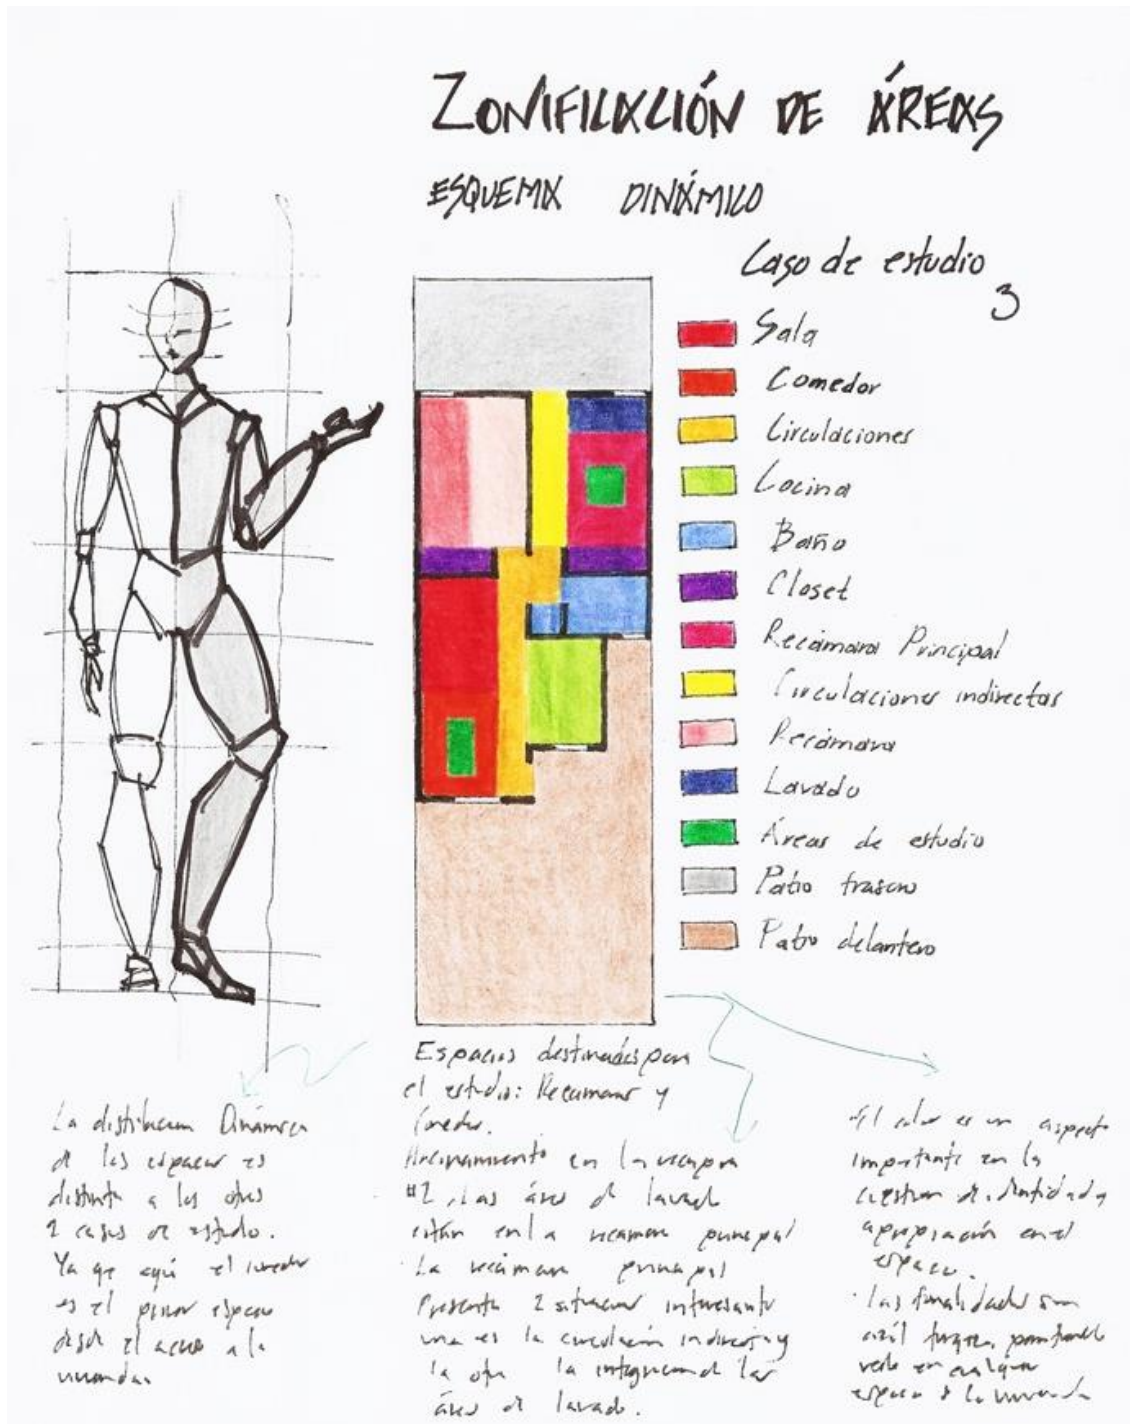 ZONIFICACIÓN DE ÁREAS
ESQUEMA DINÁMICO
Caso de estudio
3
Sala
Comedor
Circulaciones
Cocina
Baño
Closet
Recámara Principal
Circulaciones indirectas
Recámara
Lavado
Áreas de estudio
Patio trasero
Patio delantero
Espacios destinados para
el estudio: Recamaras y
La distribucion Dinámica
de los espacios es
distinta a los otros
2 casos de estudio.
Ya que aquí el
es el primer espacio
desde el acceso a la
vivienda.
Hacinamiento en la
#2. Las áreas de lavado
están en la recamara principal
La recámara principal
Presenta 2 situaciones interesantes
una es la circulación indirecta y
la otra la integracion de las
áreas de lavado.
El color es un aspecto
importante en la
cuestion de identidad y
apropiación en el
espacio.
Las tonalidades son
azul turquesa,
verde en cualquier
espacio de la vivienda